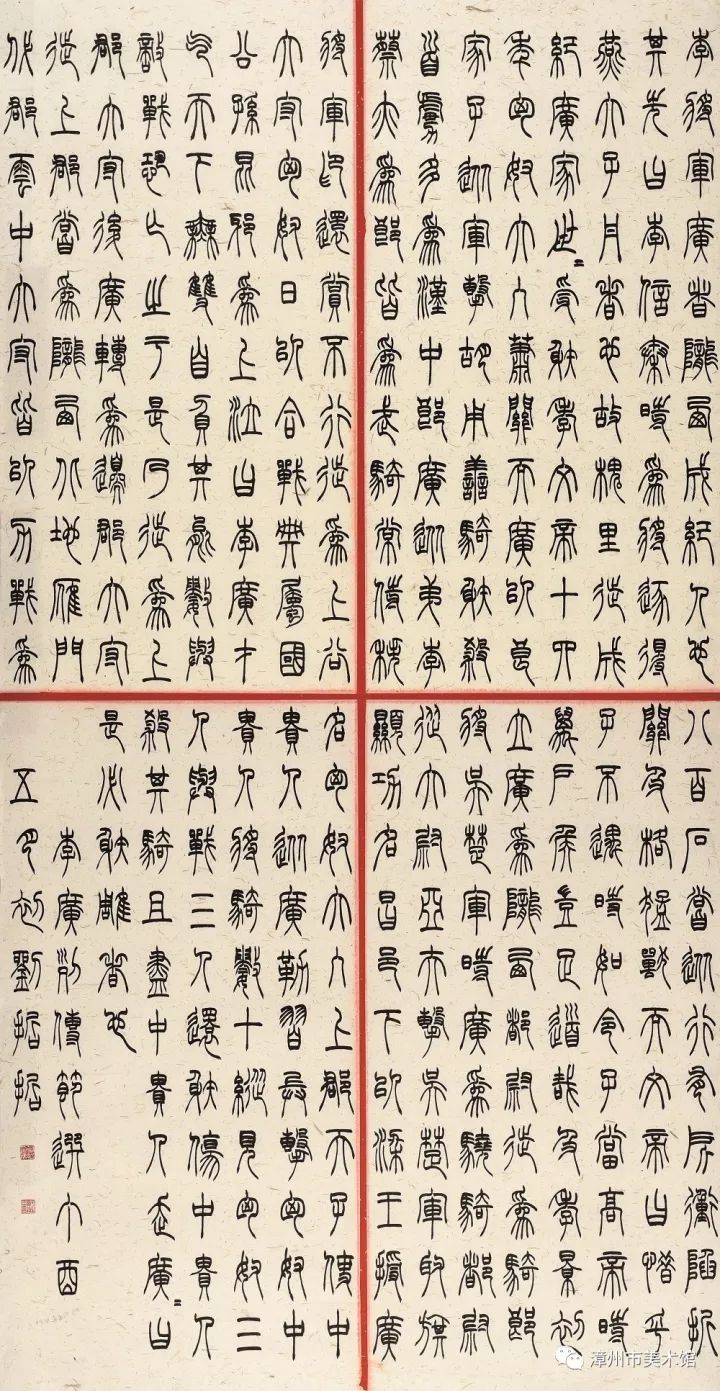 李將軍廣者隴西成紀人也
其先曰李信秦時為將逐得
燕太子丹者也故槐里徙成
紀廣家世〻受射孝文帝十四
年匈奴大入蕭關而廣以良
家子從軍擊胡用善騎射殺
首虜多為漢中郎廣從弟李
蔡亦為郎皆為武騎常侍秩
八百石嘗從行有所衝陷折
關及格猛獸而文帝曰惜乎
子不遇時如令子當高帝時
萬戶侯豈足道哉及孝景初
立廣為隴西都尉徙為騎郎
將吳楚軍時廣為驍騎都尉
從太尉亞夫擊吳楚軍取旗
顯功名昌邑下以梁王授廣
將軍印還賞不行徙為上谷
太守匈奴日以合戰典屬國
公孫昆邪為上泣曰李廣才
氣天下無雙自負其能數與
敵戰恐亡之于是乃徙為上
郡太守後廣轉為邊郡太守
徙上郡嘗為隴西北地雁門
代郡雲中太守皆以力戰為
名匈奴大入上郡天子使中
貴人從廣勒習兵擊匈奴中
貴人將騎數十縱見匈奴三
人與戰三人還射傷中貴人
殺其騎且盡中貴人走廣〻曰
是必射雕者也
李廣列傳節選丁酉
五月初劉
漳州市美术馆